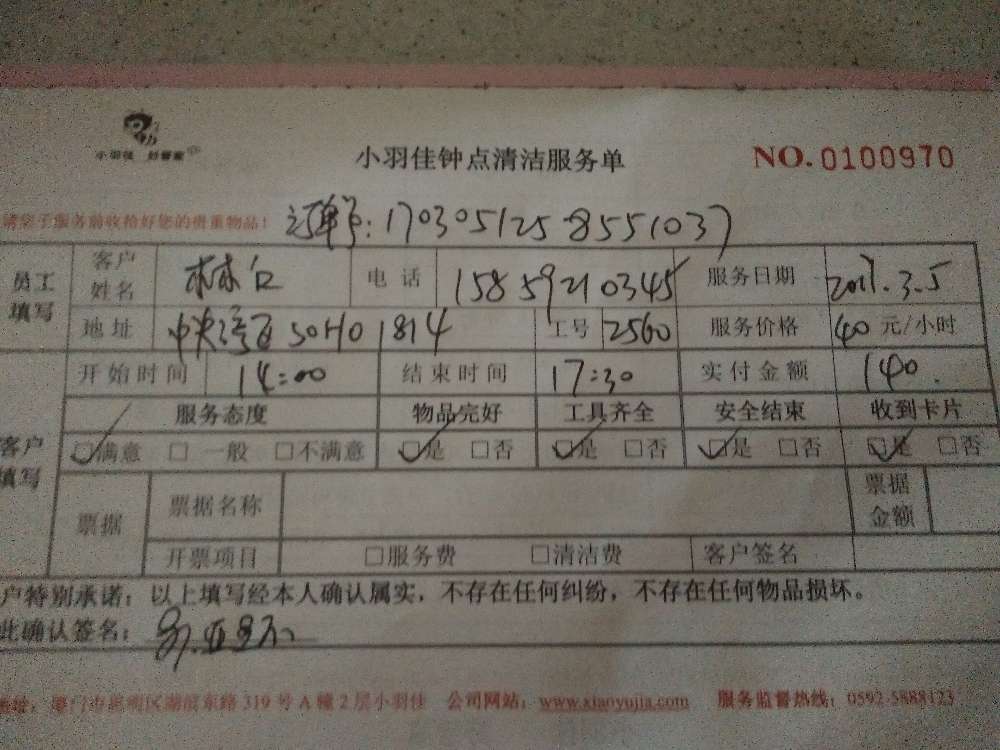 小羽佳 妙管家
小羽佳钟点清洁服务单 NO.0100970
请您于服务前收拾好您的贵重物品! 订单号:1703051258551037
员工填写 客户姓名 林 电话 15859210345 服务日期 2017.3.5
地址 中央湾区SOHO 1814 工号 2560 服务价格 40 元/小时
开始时间 14:00 结束时间 17:30 实付金额 140.
客户填写 服务态度 物品完好 工具齐全 安全结束 收到卡片
☑满意 □一般 □不满意 ☑是 □否 ☑是 □否 ☑是 □否 ☑是 □否
票据 票据名称 票据金额
开票项目 □服务费 □清洁费 客户签名
户特别承诺:以上填写经本人确认属实,不存在任何纠纷,不存在任何物品损坏。
此确认签名:
地址:厦门市思明区湖滨东路319号A幢2层小羽佳 公司网站:www.xiaoyujia.com 服务监督热线:0592-5888123